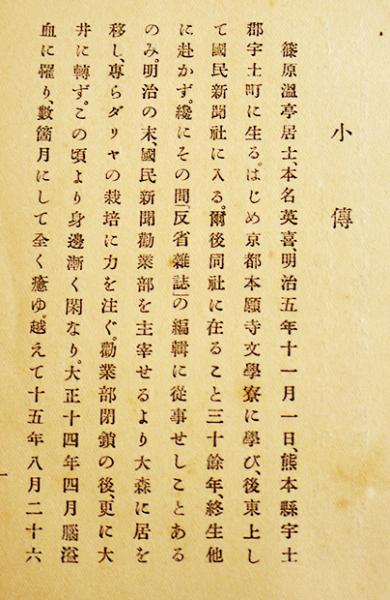 小傳
篠原溫亭居士、本名英喜、明治五年十一月一日、熊本縣宇土
郡宇土町に生る。はじめ京都本願寺文學寮に學び、後東上し
て國民新聞社に入る。爾後同社に在ること三十餘年、終生他
に赴かず。纔にその間「反省雜誌」の編輯に從事せしことある
のみ。明治の末、國民新聞勸業部を主宰せるより大森に居を
移し、專らダリヤの栽培に力を注ぐ。勸業部閉鎖の後、更に大
井に轉ず。この頃より身邊漸く閑なり。大正十四年四月腦溢
血に罹り、數箇月にして全く癒ゆ。越えて十五年八月二十六
一